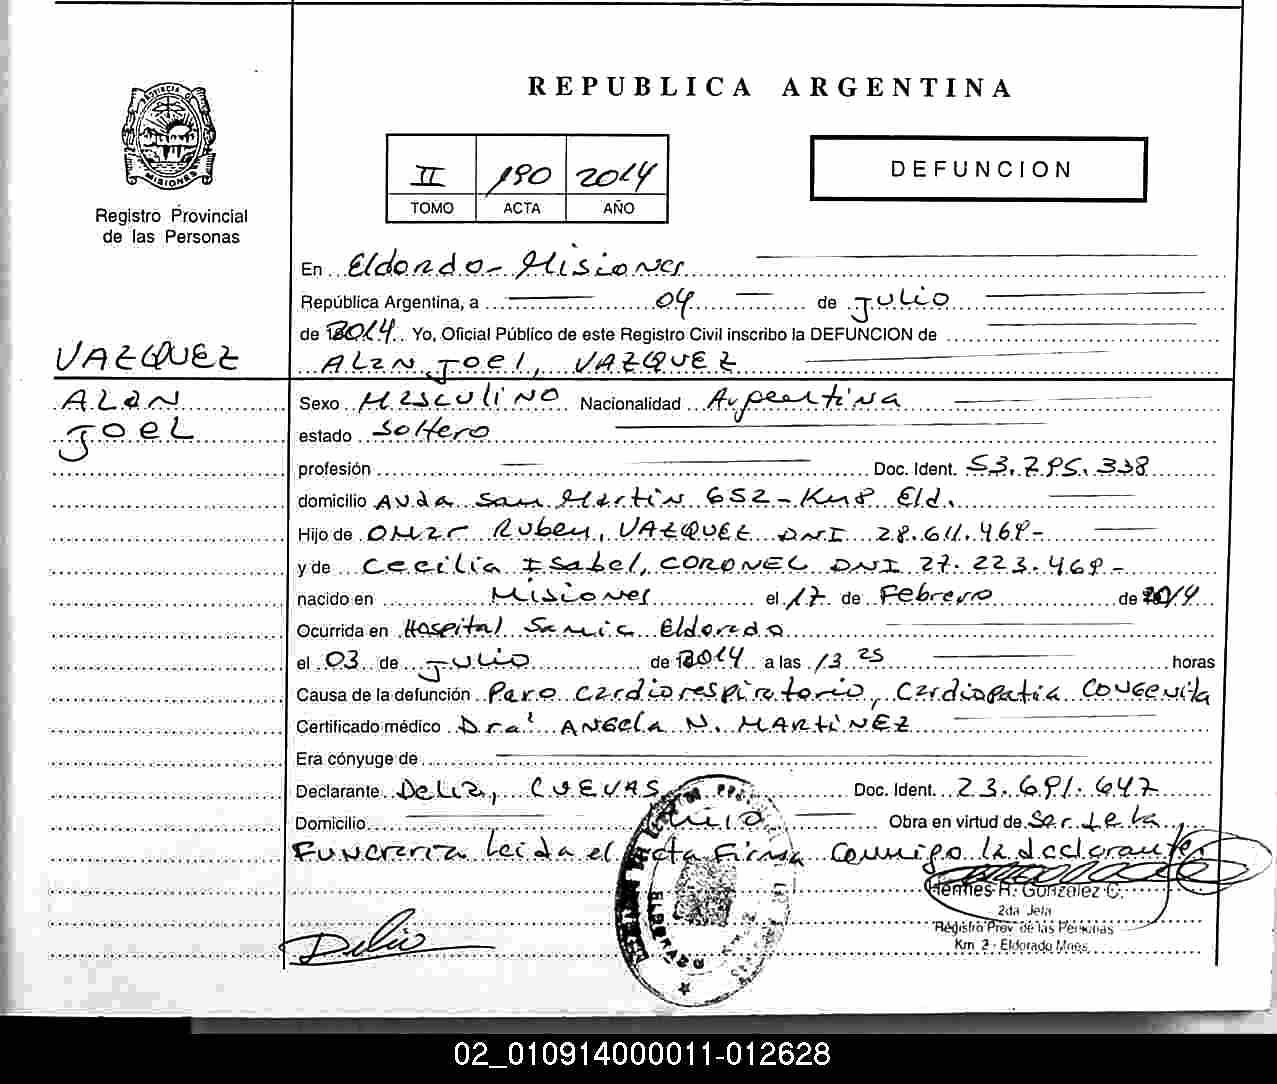 REPUBLICA ARGENTINA
PROVINCIA DE
MISIONES
Registro Provincial
de las Personas
II 190 2014
TOMO ACTA AÑO
DEFUNCION
En Eldorado - Misiones
República Argentina, a 04 de Julio
de 2014 Yo, Oficial Público de este Registro Civil inscribo la DEFUNCION de
VAZQUEZ
ALAN JOEL, VAZQUEZ
ALAN
JOEL
Sexo MASCULINO Nacionalidad Argentina
estado Soltero
profesión Doc. Ident. 53.795.338
domicilio Avda San Martin 652 - Km8 Eld.
Hijo de OMAR Ruben, VAZQUEZ DNI 28.611.469 -
y de Cecilia Isabel, CORONEL DNI 27.223.469 -
nacido en Misiones el 17 de Febrero de 2014
Ocurrida en Hospital Samic Eldorado
el 03 de Julio de 2014 a las 13 25 horas
Causa de la defunción Paro cardiorespiratorio, Cardiopatia Congenita
Certificado médico Dra. ANGELA N. MARTINEZ
Era cónyuge de
Declarante Delia, CUEVAS Doc. Ident. 23.691.647
Domicilio Obra en virtud de Ser de la
Funeraria leida el Acta Firma Conmigo la declarante
Hermes R. Gonzalez C.
2da Jefa
Registro Prov. de las Personas
Km. 2 - Eldorado Mnes.
Delia
ELDORADO
02_010914000011-012628